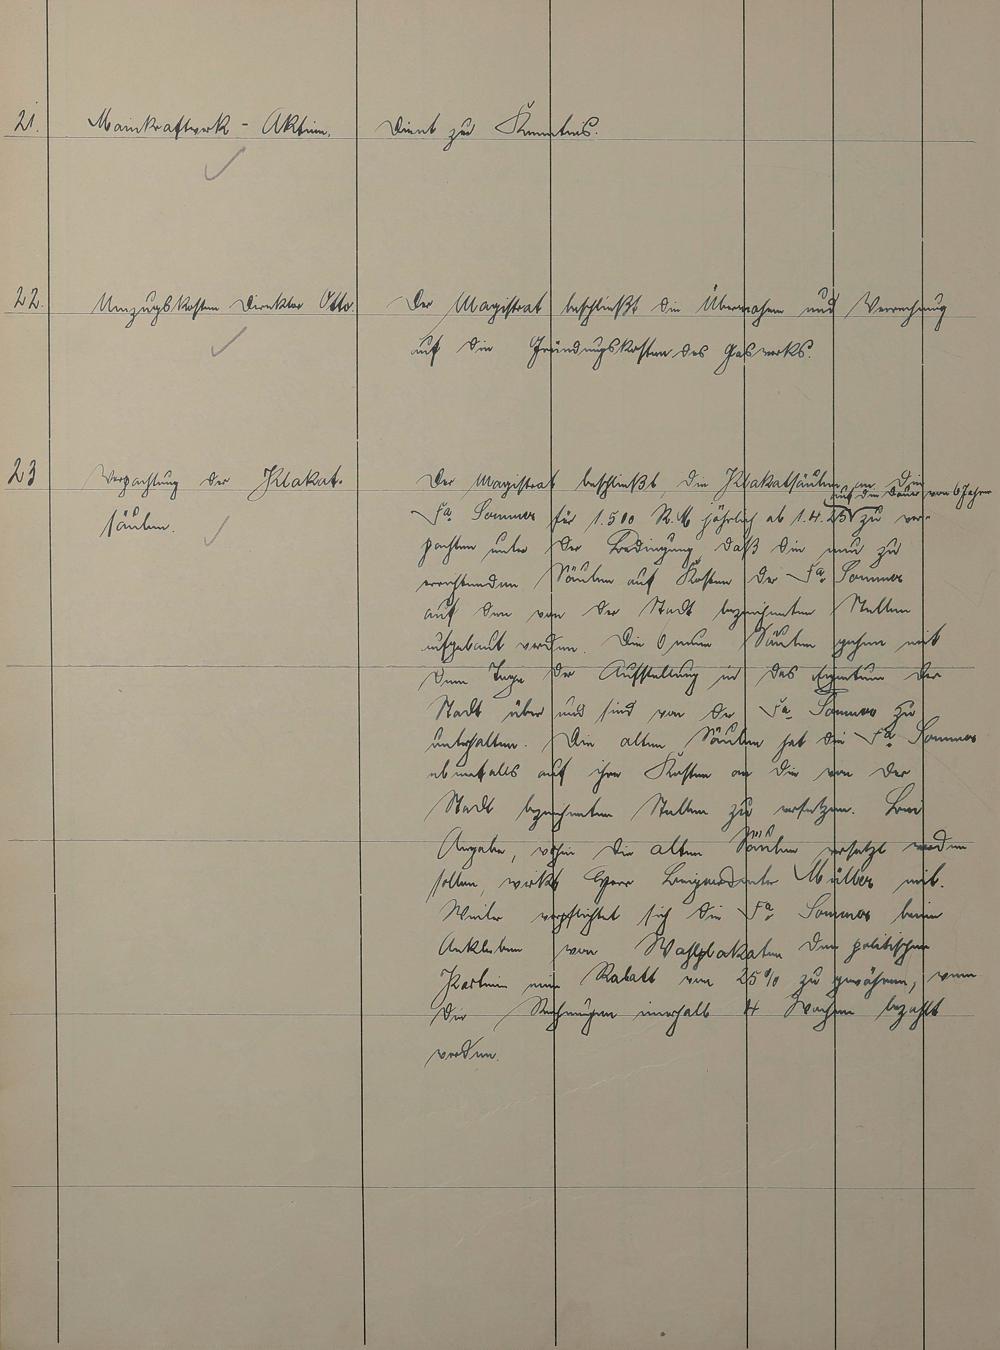 21. Mainkraftwerk - Aktien. Dient zur Kenntnis.
22. Umzugskosten Direktor Otto. Der Magistrat beschließt die Übernahme und Verrechnung
auf die Gründungskosten des Gaswerks.
23 Verpachtung der Plakat- Der Magistrat beschließt, die Plakatsäulen an die
auf die Dauer von 6 Jahren
säulen. Fa. Sommer für 1.500 R.M jährlich ab 1.4.25 zu ver-
pachten unter der Bedingung, daß die neu zu
errichtenden Säulen auf Kosten der Fa. Sommer
auf den von der Stadt bezeichneten Stellen
aufgebaut werden. Die 6 neuen Säulen gehen mit
dem Tage der Aufstellung in das Eigentum der
Stadt über und sind von der Fa. Sommer zu
unterhalten. Die alten Säulen hat die Fa. Sommer
ebenfalls auf ihre Kosten an die von der
Stadt bezeichneten Stellen zu versetzen. Bei
Angabe, wohin die alten Säulen versetzt werden
sollen, wirkt Herr Beigeordneter Müller mit.
Weiter verpflichtet sich die Fa. Sommer beim
Ankleben von Wahlplakaten den politischen
Parteien einen Rabatt von 25% zu gewähren, wenn
die Rechnungen innerhalb 4 Wochen bezahlt
werden.